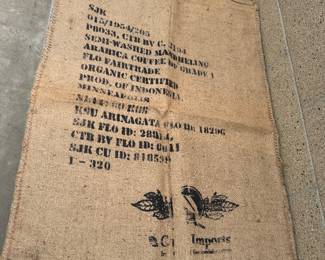 SJK
015/1954/205
P8033, CTR BY C. 2154
SEMI-WASHED MANDHELING
ARABICA COFFEE DP GRADE 1
FLO FAIRTRADE
ORGANIC CERTIFIED
PROD. OF INDONESIA
MINNEAPOLIS
KSU ARINAGATA FLO ID: 18296
SJK FLO ID:
CTR BY FLO ID:
SJK CU ID:
1-320
Imports